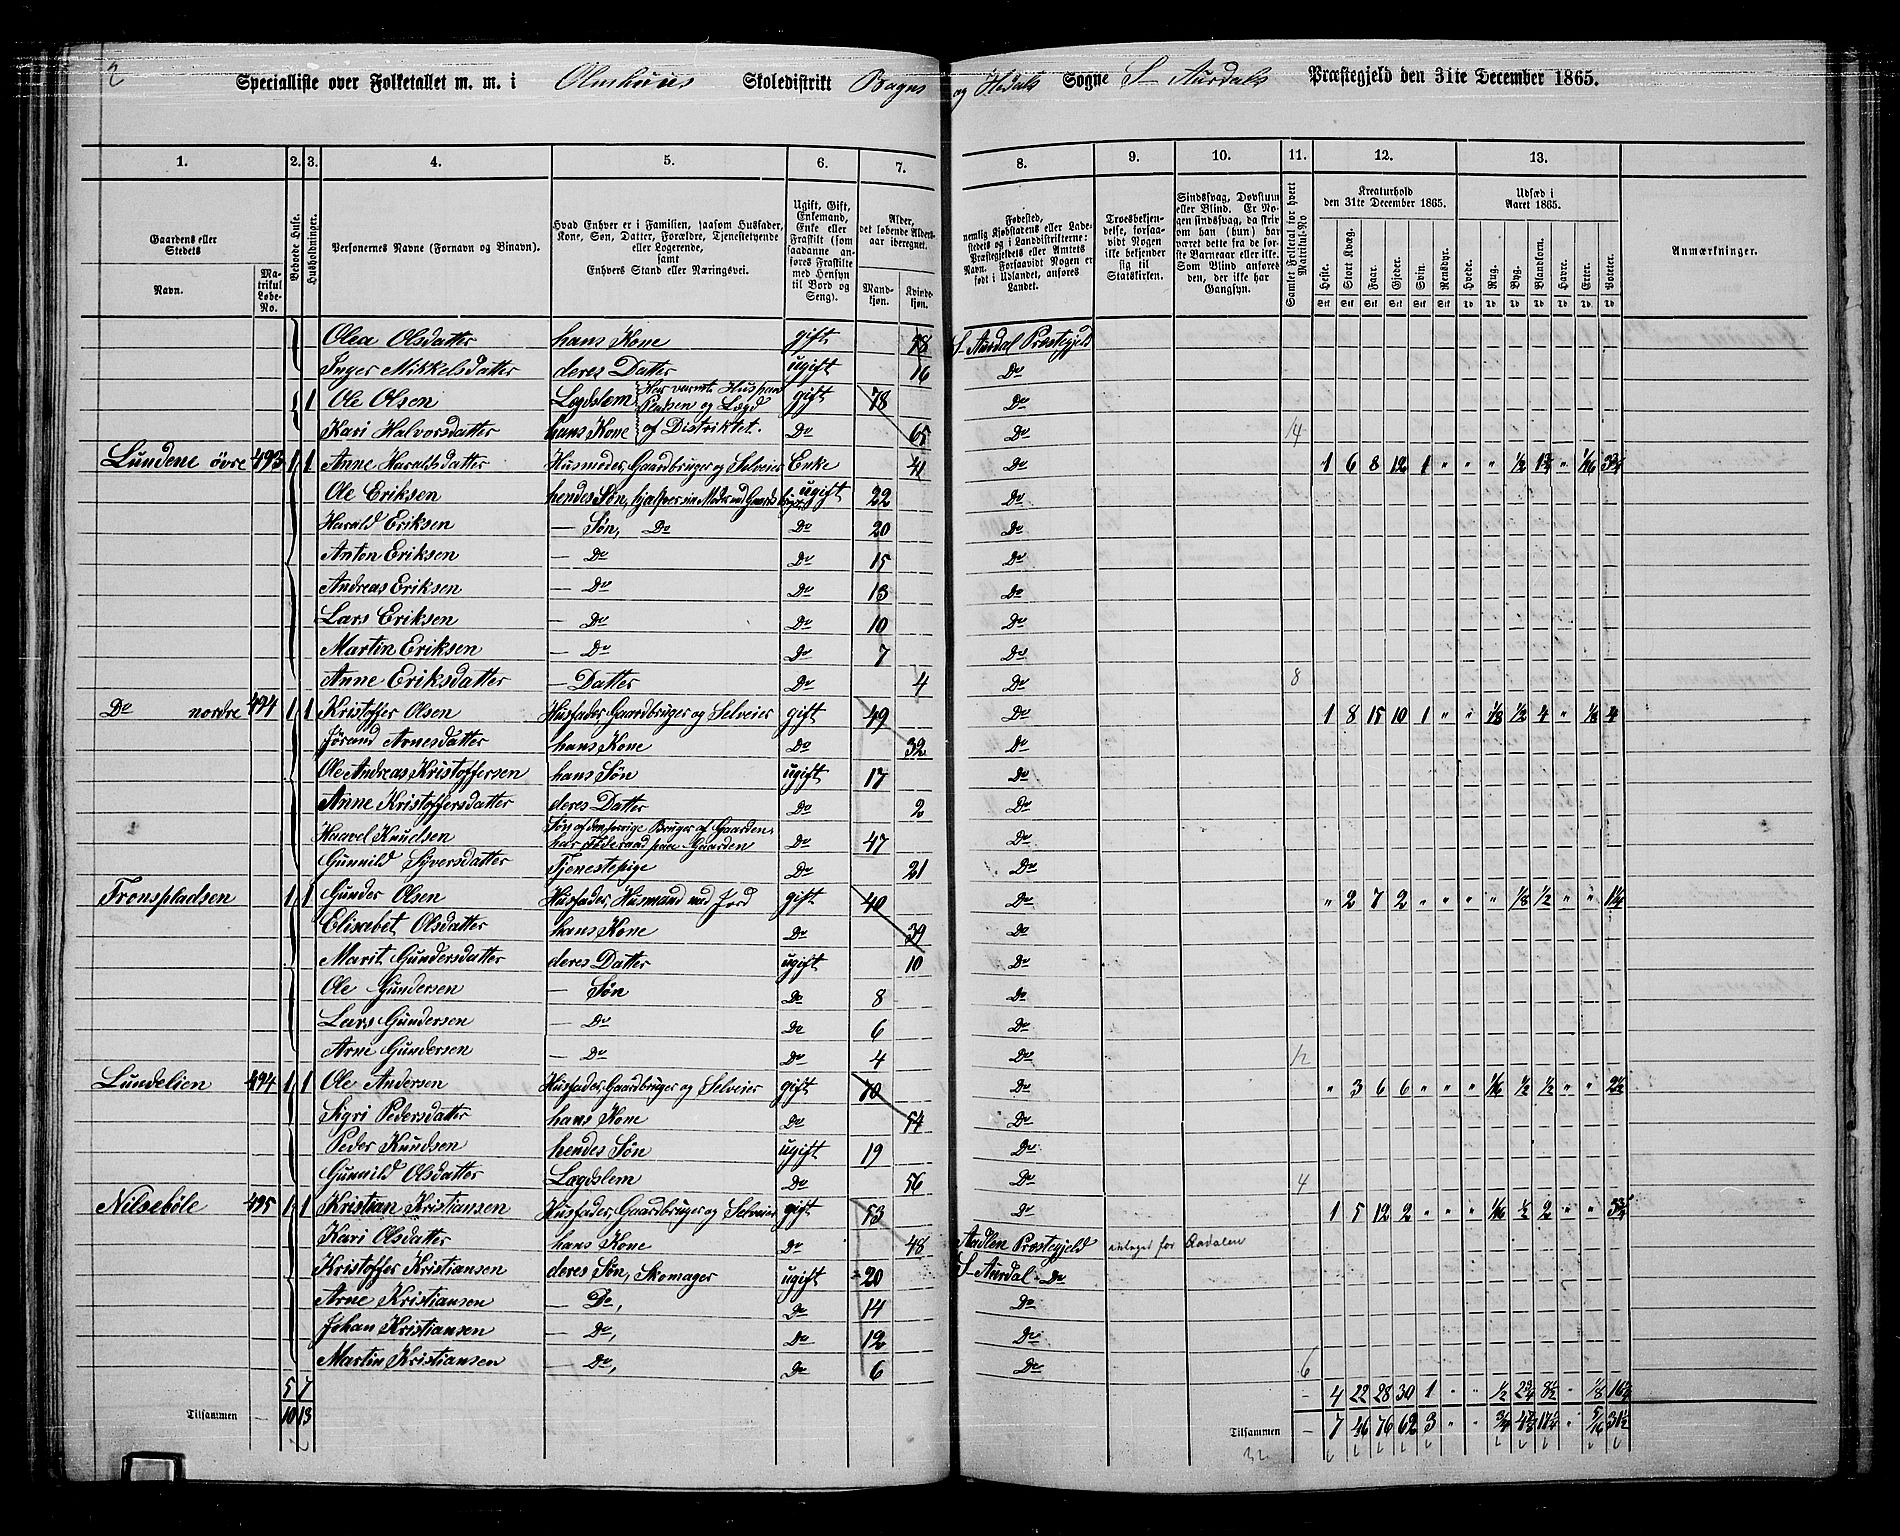 2
Specialliste over Folketallet m. m. i Olmhuus Skoledistrikt Bagns og Hedals Sogne S. Aurdals Præstegjeld den 31te December 1865.
1. 2. 3. 4. 5. 6. 7. 8. 9. 10. 11. 12. 13.
Gaardens eller Stedets
Navn.
Matrikul Løbe-No.
Beboede Huse.
Husholdninger.
Personernes Navne (Fornavn og Binavn).
Hvad Enhver er i Familien, saasom Husfader, Kone, Søn, Datter, Forældre, Tjenestetyende eller Logerende, samt Enhvers Stand eller Næringsvei.
Ugift, Gift, Enkemand, Enke eller Fraskilt (som saadanne anføres Fraskilte med Hensyn til Bord og Seng).
Alder, det løbende Aldersaar iberegnet.
Mandkjøn.
Kvindekjøn.
Fødested, nemlig Kjøbstadens eller Ladestedets og i Landdistrikterne: Præstegjeldets eller Amtets Navn. Forsaavidt Nogen er født i Udlandet, anføres Landet.
Troesbekjendelse, forsaavidt Nogen ikke bekjender sig til Statskirken.
Sindssvag, Døvstum eller Blind. Er Nogen sindssvag, da skrives om han (hun) har været dette fra de første Barneaar eller ikke. Som Blind anføres den, der ikke har Gangsyn.
Samlet Folketal for hvert Matrikul-No
Kreaturhold den 31te December 1865.
Heste. Stort Kvæg. Faar. Gjeder. Svin. Rensdyr.
Udsæd i Aaret 1865.
Hvede. Rug. Byg. Blandkorn. Havre. Erter. Poteter.
Anmærkninger.
Olea Olsdatter hans Kone gift 48 S. Aurdal Præstegjeld
Inger Mikkelsdatter deres Datter ugift 16 Do
1 Ole Olsen Lægdslem gift 78 Do
Kari Halvorsdatter hans Kone af Distriktet. Do 65 Do 14
Lundene øvre 493 1 1 Anne Haraldsdatter Husmoder, Gaardbruger og Selveier Enke 41 Do 1 6 8 12 1 " " " 1/2 1 3/4 " 1/16 3 3/4
Ole Eriksen hendes Søn, hjælper sin Moder med Gaardsbruget ugift 22 Do
Harald Eriksen — Søn, Do Do 20 Do
Anton Eriksen — Do Do 15 Do
Andreas Eriksen — Do Do 13 Do
Lars Eriksen — Do Do 10 Do
Martin Eriksen — Do Do 7 Do
Anne Eriksdatter — Datter Do 4 Do 8
Do nordre 494 1 1 Kristoffer Olsen Husfader, Gaardbruger og Selveier gift 49 Do 1 8 15 10 1 " " 1/8 1/2 4 " 1/8 4
Jørand Arnesdatter hans Kone Do 32 Do
Ole Andreas Kristoffersen hans Søn ugift 17 Do
Anne Kristoffersdatter deres Datter Do 2 Do
Haavel Knudsen Søn af den forrige Bruger af Gaarden, har Føderaad paa Gaarden Do 47 Do
Gunnild Syversdatter Tjenestepige Do 21 Do
Fronspladsen 1 1 Gunder Olsen Husfader, Husmand med Jord gift 40 Do " 2 7 2 " " " " 1/8 1/2 " " 1 1/4
Elisabet Olsdatter hans Kone Do 39 Do
Marit Gundersdatter deres Datter ugift 10 Do
Ole Gundersen — Søn Do 8 Do
Lars Gundersen — Do Do 6 Do
Arne Gundersen — Do Do 4 Do 12
Lundelien 494 1 1 Ole Andersen Husfader, Gaardbruger og Selveier gift 70 Do " 3 6 6 " " " 1/16 1/2 1/2 " " 2 1/2
Sigri Pedersdatter hans Kone Do 54 Do
Peder Knudsen hendes Søn ugift 19 Do
Gunnild Olsdatter Lægdslem Do 56 Do 4
Nilsebøle 495 1 1 Kristian Kristiansen Husfader, Gaardbruger og Selveier gift 53 Do 1 5 12 2 " " " 1/16 1/2 2 " "
Kari Olsdatter hans Kone Do 48 Aadlen Præstegjeld antaget for Aadalen
Kristoffer Kristiansen deres Søn, Skomager ugift 20 S. Aurdal Do
Arne Kristiansen — Do, Do 14 Do
Johan Kristiansen — Do, Do 12 Do
Martin Kristiansen — Do, Do 6 Do 6
5 7 - 4 22 28 30 1 " " 1/2 2 3/4 8 1/2 - 1/8 16 1/4
Tilsammen — 10 13 Tilsammen — 7 46 76 62 3 " " 3/4 " 5/16 31 1/2
32